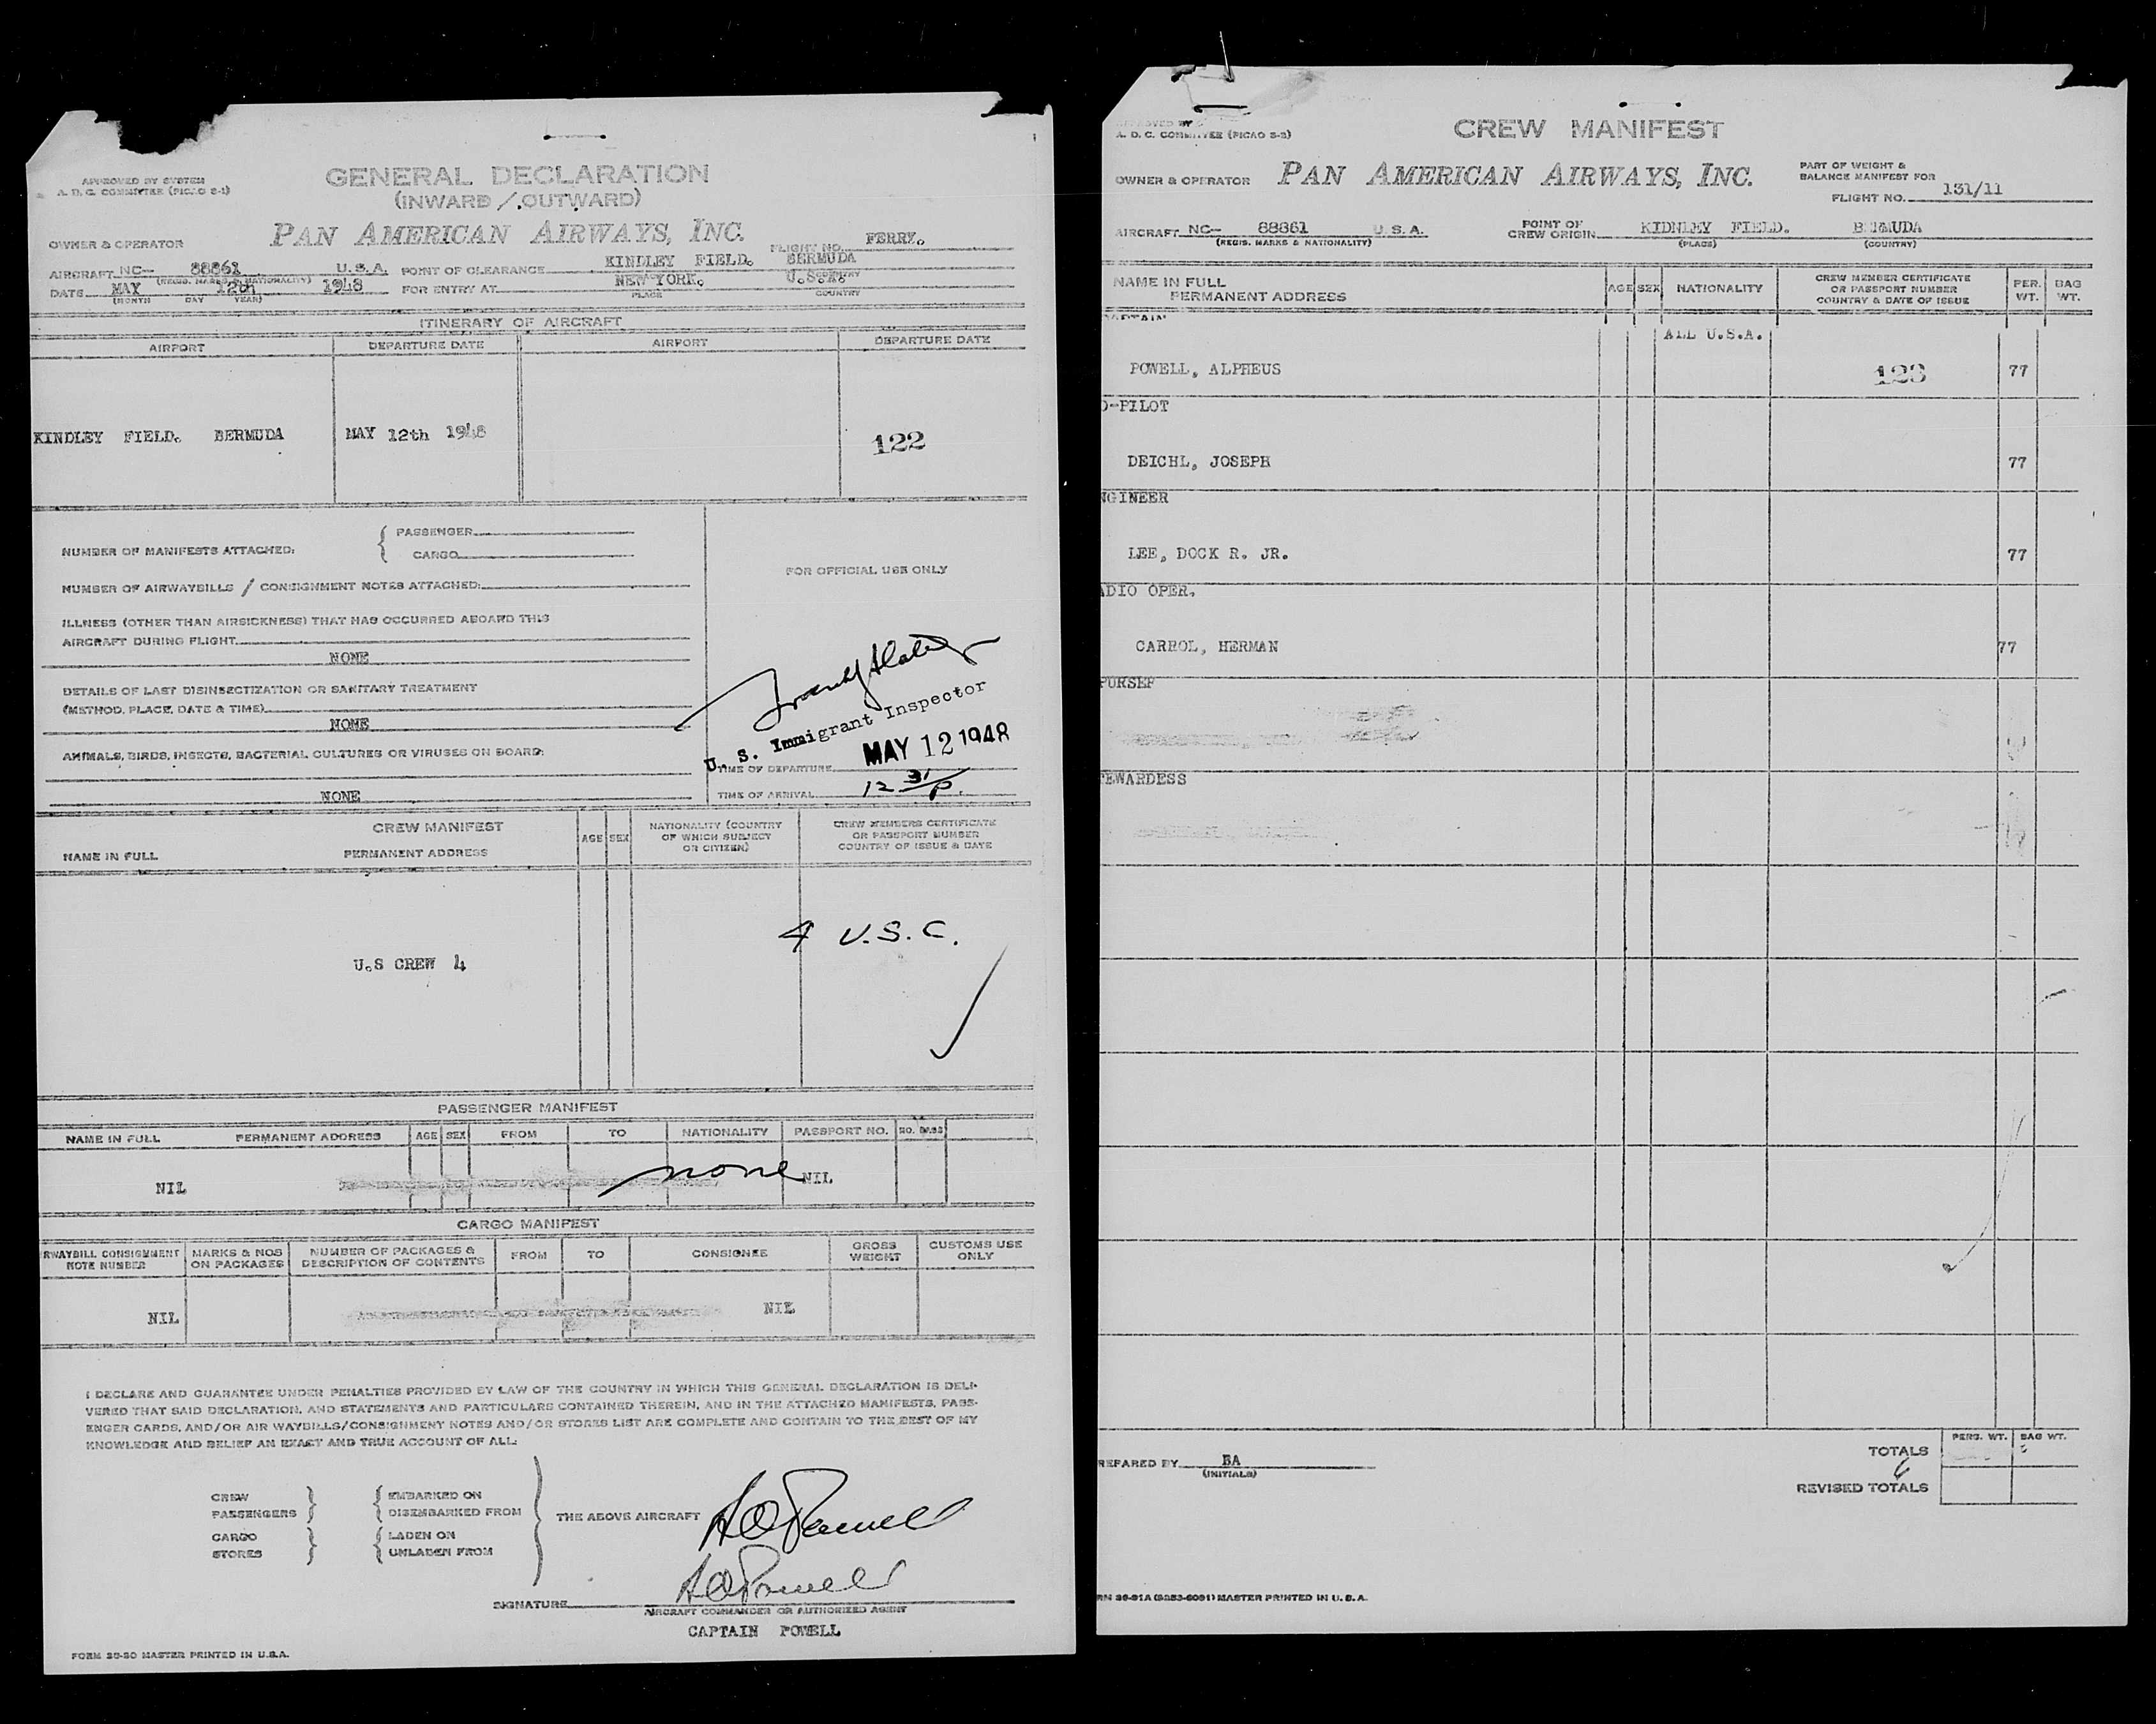 APPROVED BY SYSTEM
A. D. C. COMMITTEE (PICAO S-1)
GENERAL DECLARATION
(INWARD / OUTWARD)
OWNER & OPERATOR PAN AMERICAN AIRWAYS, INC. FLIGHT NO. FERRY.
AIRCRAFT NC- 88861 U.S.A. POINT OF CLEARANCE KINDLEY FIELD. BERMUDA
(REGIS. MARKS & NATIONALITY) COUNTRY
DATE MAY 12th 1948 FOR ENTRY AT NEW YORK.
(MONTH DAY YEAR) PLACE COUNTRY
ITINERARY OF AIRCRAFT
AIRPORT DEPARTURE DATE AIRPORT DEPARTURE DATE
KINDLEY FIELD. BERMUDA MAY 12th 1948 122
NUMBER OF MANIFESTS ATTACHED: { PASSENGER
CARGO
NUMBER OF AIRWAYBILLS / CONSIGNMENT NOTES ATTACHED:
FOR OFFICIAL USE ONLY
ILLNESS (OTHER THAN AIRSICKNESS) THAT HAS OCCURRED ABOARD THIS
AIRCRAFT DURING FLIGHT
NONE
DETAILS OF LAST DISINSECTIZATION OR SANITARY TREATMENT
(METHOD, PLACE, DATE & TIME)
NONE
ANIMALS, BIRDS, INSECTS, BACTERIAL CULTURES OR VIRUSES ON BOARD:
NONE
U. S. Immigrant Inspector
MAY 12 1948
TIME OF DEPARTURE
TIME OF ARRIVAL 12 31/P.
CREW MANIFEST
NAME IN FULL PERMANENT ADDRESS AGE SEX NATIONALITY (COUNTRY OF WHICH SUBJECT OR CITIZEN) CREW MEMBERS CERTIFICATE OR PASSPORT NUMBER COUNTRY OF ISSUE & DATE
4 U.S.C.
U.S CREW 4
PASSENGER MANIFEST
NAME IN FULL PERMANENT ADDRESS AGE SEX FROM TO NATIONALITY PASSPORT NO. NO. BAGS
NIL none NIL
CARGO MANIFEST
RWAYBILL CONSIGNMENT NOTE NUMBER MARKS & NOS ON PACKAGES NUMBER OF PACKAGES & DESCRIPTION OF CONTENTS FROM TO CONSIGNEE GROSS WEIGHT CUSTOMS USE ONLY
NIL NIL
I DECLARE AND GUARANTEE UNDER PENALTIES PROVIDED BY LAW OF THE COUNTRY IN WHICH THIS GENERAL DECLARATION IS DELI-
VERED THAT SAID DECLARATION, AND STATEMENTS AND PARTICULARS CONTAINED THEREIN, AND IN THE ATTACHED MANIFESTS, PASS-
ENGER CARDS, AND/OR AIR WAYBILLS/CONSIGNMENT NOTES AND/OR STORES LIST ARE COMPLETE AND CONTAIN TO THE BEST OF MY
KNOWLEDGE AND BELIEF AN EXACT AND TRUE ACCOUNT OF ALL:
CREW EMBARKED ON
PASSENGERS DISEMBARKED FROM
THE ABOVE AIRCRAFT A O Powell
CARGO LADEN ON
STORES UNLADEN FROM
A O Powell
SIGNATURE
AIRCRAFT COMMANDER OR AUTHORIZED AGENT
CAPTAIN POWELL
FORM 30-90 MASTER PRINTED IN U.S.A.
APPROVED BY
A. D. C. COMMITTEE (PICAO S-2)
CREW MANIFEST
OWNER & OPERATOR PAN AMERICAN AIRWAYS, INC.
PART OF WEIGHT &
BALANCE MANIFEST FOR
FLIGHT NO. 131/11
AIRCRAFT NC- 88861 U.S.A. POINT OF CREW ORIGIN KIDNLEY FIELD. BERMUDA
(REGIS. MARKS & NATIONALITY) (PLACE) (COUNTRY)
NAME IN FULL PERMANENT ADDRESS AGE SEX NATIONALITY CREW MEMBER CERTIFICATE OR PASSPORT NUMBER COUNTRY & DATE OF ISSUE PER. WT. BAG WT.
ALL U.S.A.
POWELL, ALPHEUS 123 77
O-PILOT
DEICHL, JOSEPH 77
NGINEER
LEE, DOCK R. JR. 77
ADIO OPER.
CARROL, HERMAN 77
PURSER
TEWARDESS
REPARED BY BA
(INITIALS)
PERS. WT. BAG WT.
TOTALS
REVISED TOTALS
MASTER PRINTED IN U.S.A.